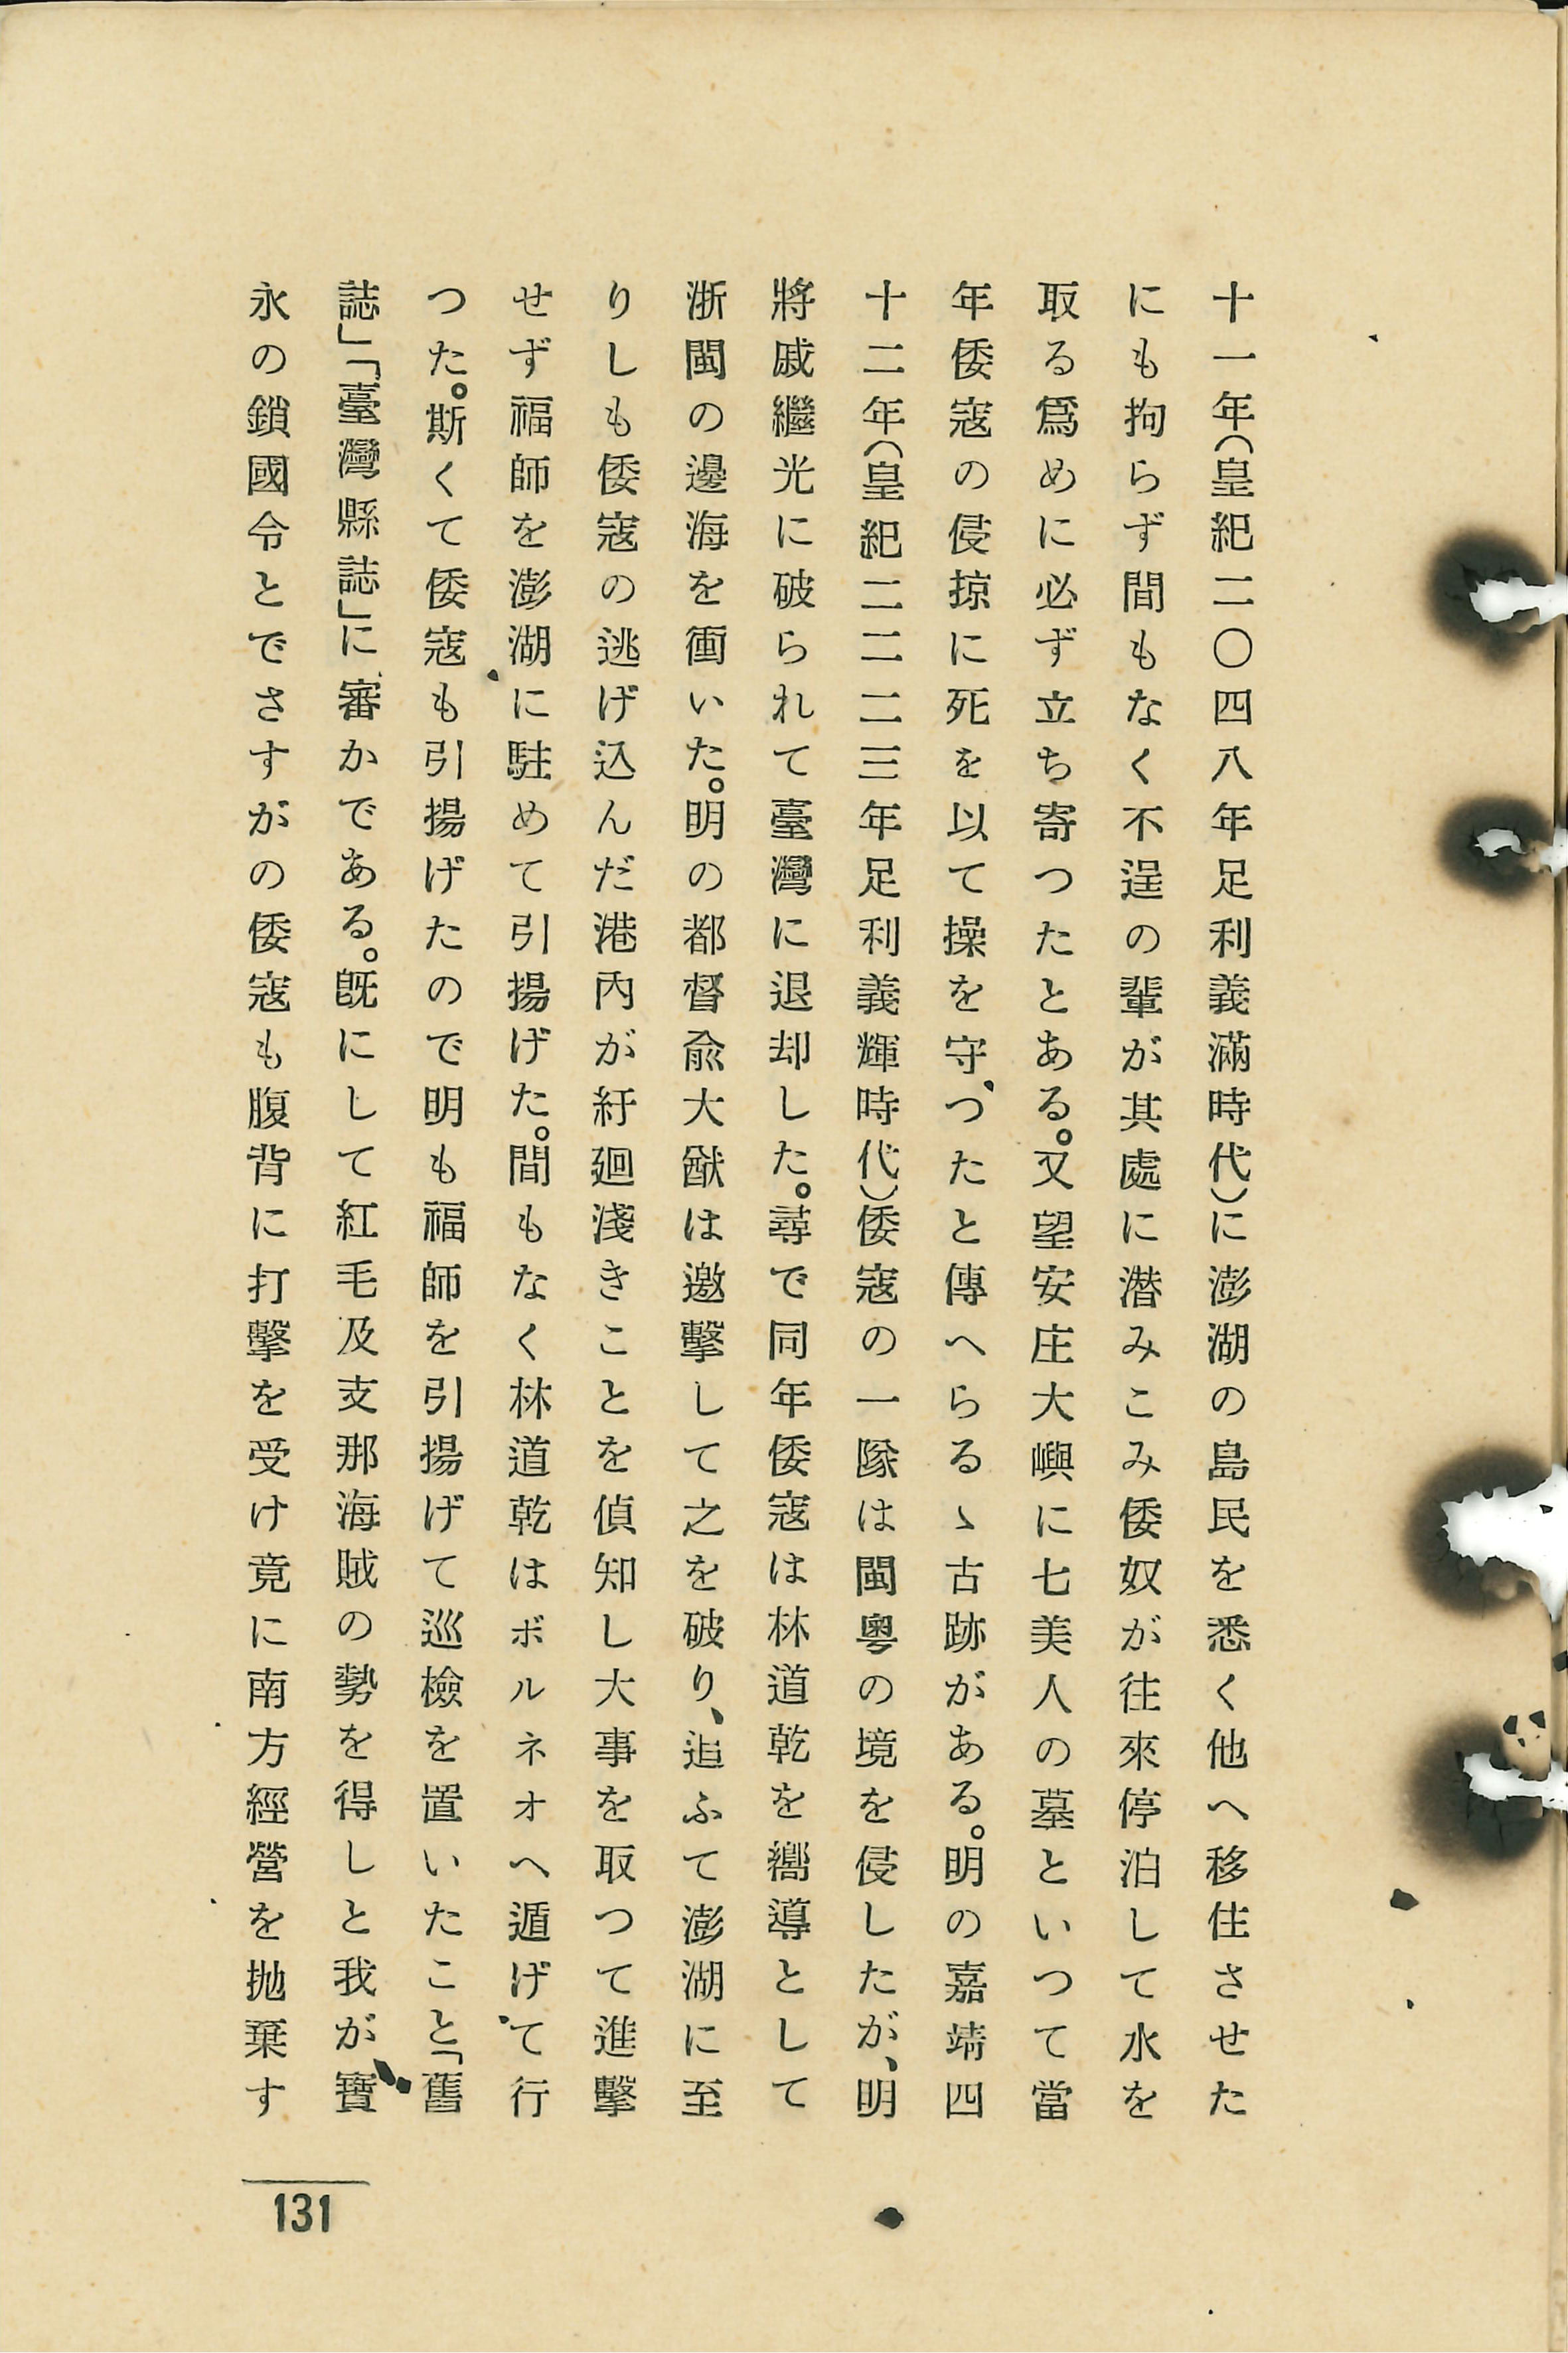 十一年（皇紀二〇四八年足利義滿時代）に澎湖の島民を悉く他へ移住させた
にも拘らず間もなく不逞の輩が其處に潜みこみ倭奴が往來停泊して水を
取る爲めに必ず立ち寄つたとある。又望安庄大嶼に七美人の墓といつて當
年倭寇の侵掠に死を以て操を守つたと傳へらるゝ古跡がある。明の嘉靖四
十二年（皇紀二二二三年足利義輝時代）倭寇の一隊は閩粵の境を侵したが、明
將戚繼光に破られて臺灣に退却した。尋で同年倭寇は林道乾を嚮導として
浙閩の邊海を衝いた。明の都督兪大猷は邀擊して之を破り、追ふて澎湖に至
りしも倭寇の逃げ込んだ港內が紆廻淺きことを偵知し大事を取つて進擊
せず福師を澎湖に駐めて引揚げた。間もなく林道乾はボルネオへ遁げて行
つた。斯くて倭寇も引揚げたので明も福師を引揚げて巡檢を置いたこと「舊
誌」「臺灣縣誌」に審かである。旣にして紅毛及支那海賊の勢を得しと我が寶
永の鎖國令とでさすがの倭寇も腹背に打擊を受け竟に南方經營を抛棄す
131